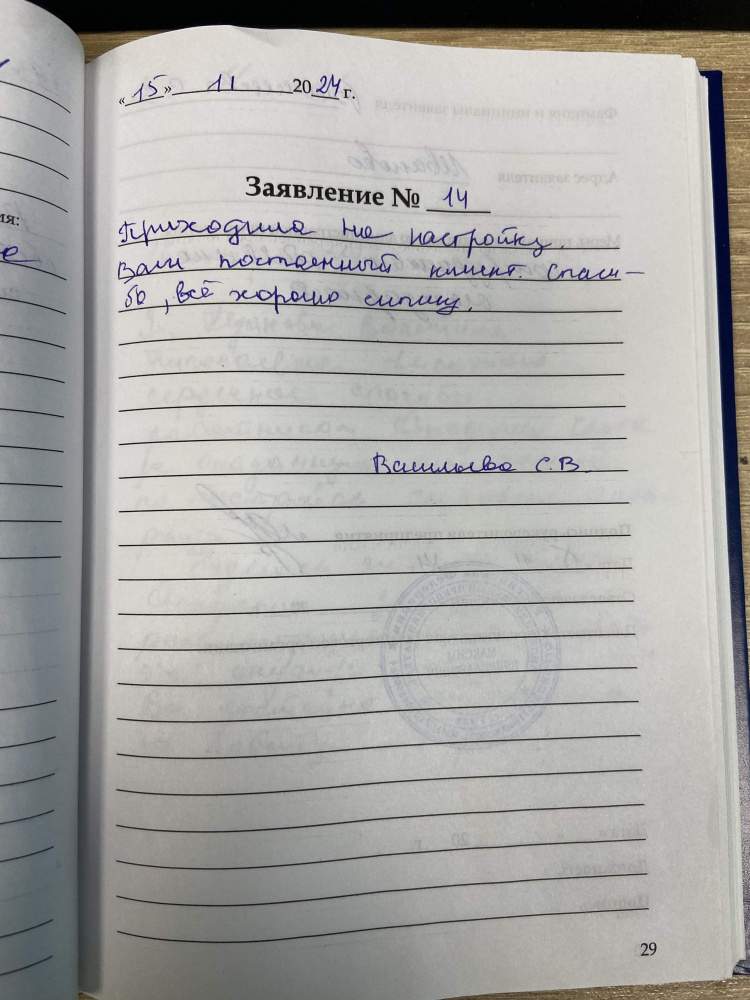 « 15 » 11 2024 г.
Заявление № 14
Приходила на настройку.
Ваш постоенный клиент. Спаси-
бо, всё хорошо слышу.
Васильева С.В.
29